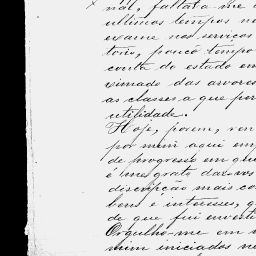 nal, faltar a-me
ultimos tempos no
exame nos serviços
torio, pouco tempo
conta do estado em
ximado das arvores
as classes a que per
utilidade.
Hoje, porem, ven
por mim aqui em
de progresso em que
é-me grato dar-vos
discripção mais co
bens e interesses, q
de que fui investi
Orgulho-me em
mim iniciados ne